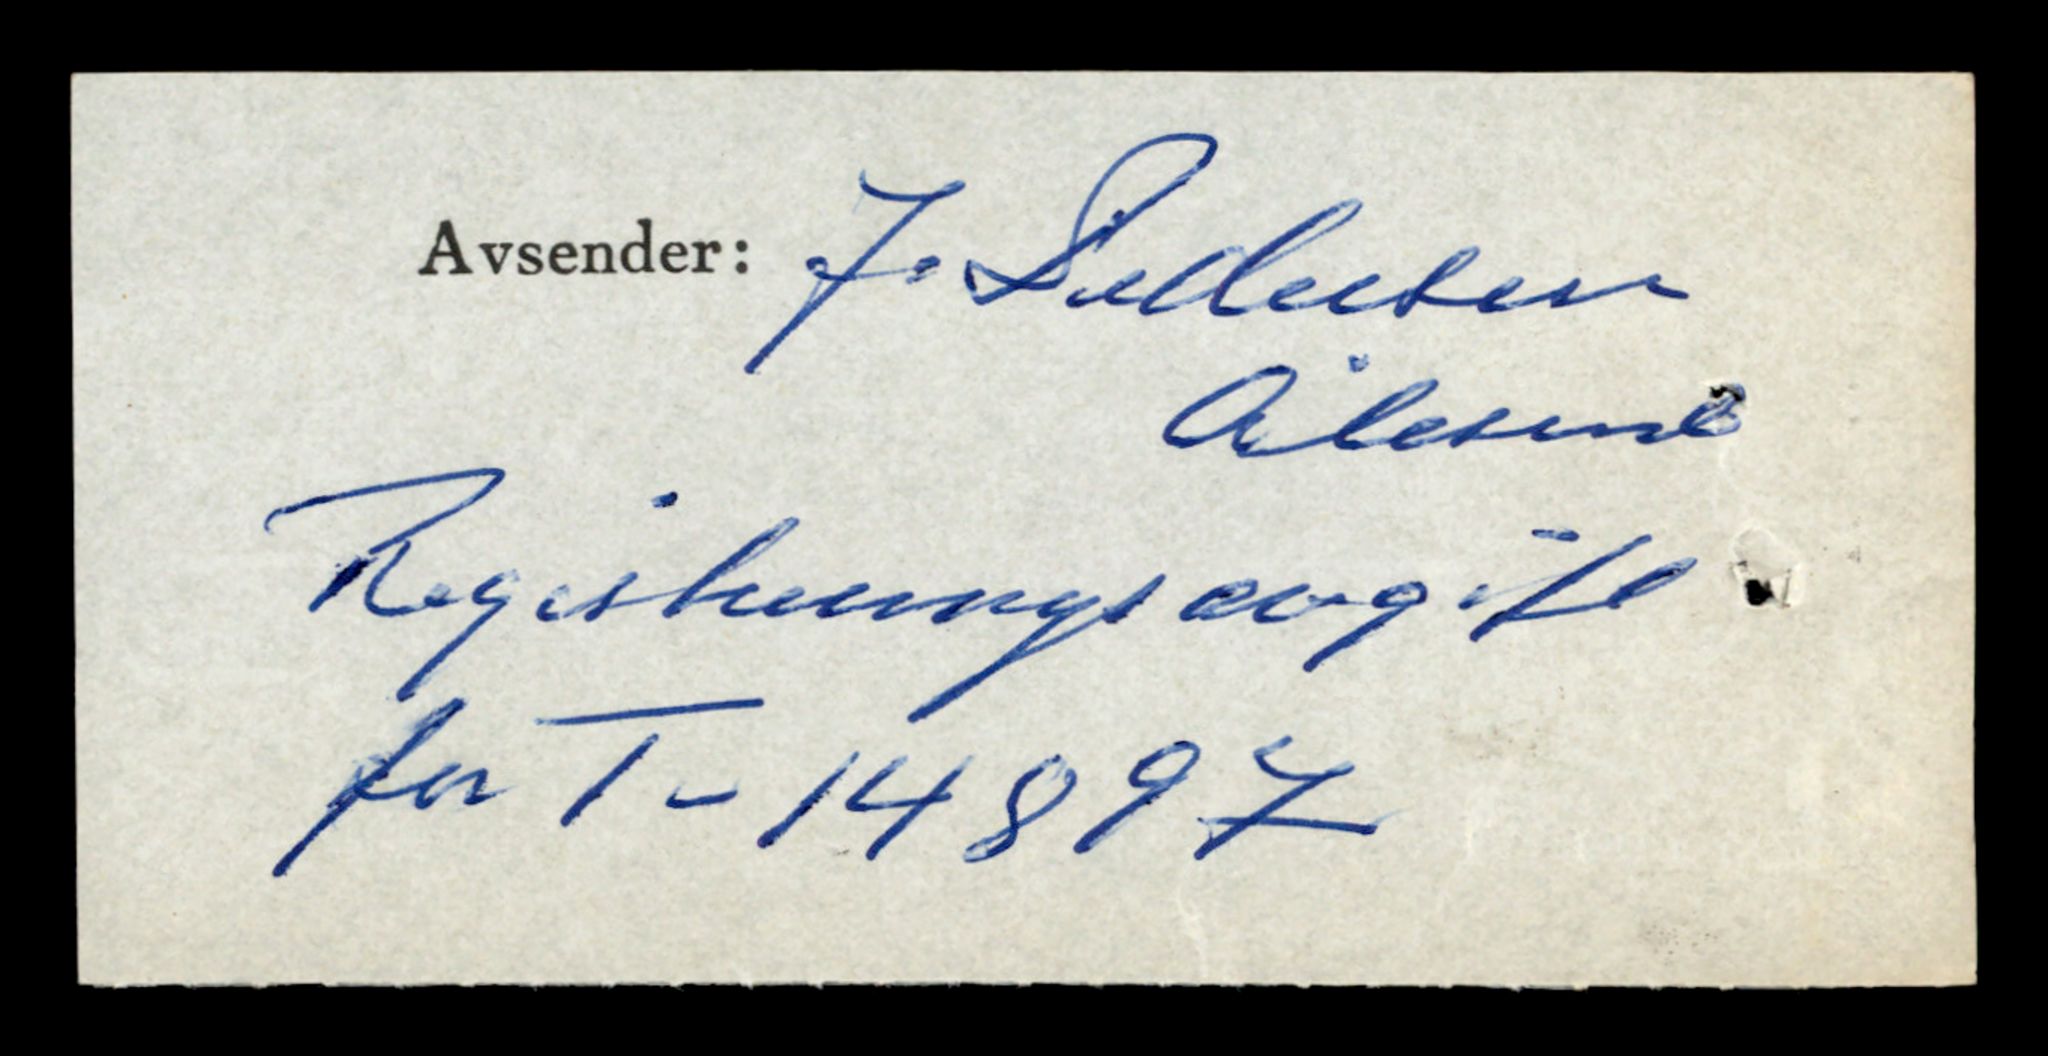 Avsender: J.
Ålesund
Registreringsavgift
for T-14897